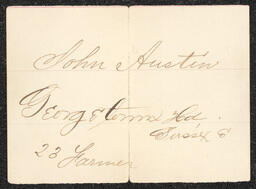 John Austin
Georgetown Hd.
Sussex C
23 Farmer